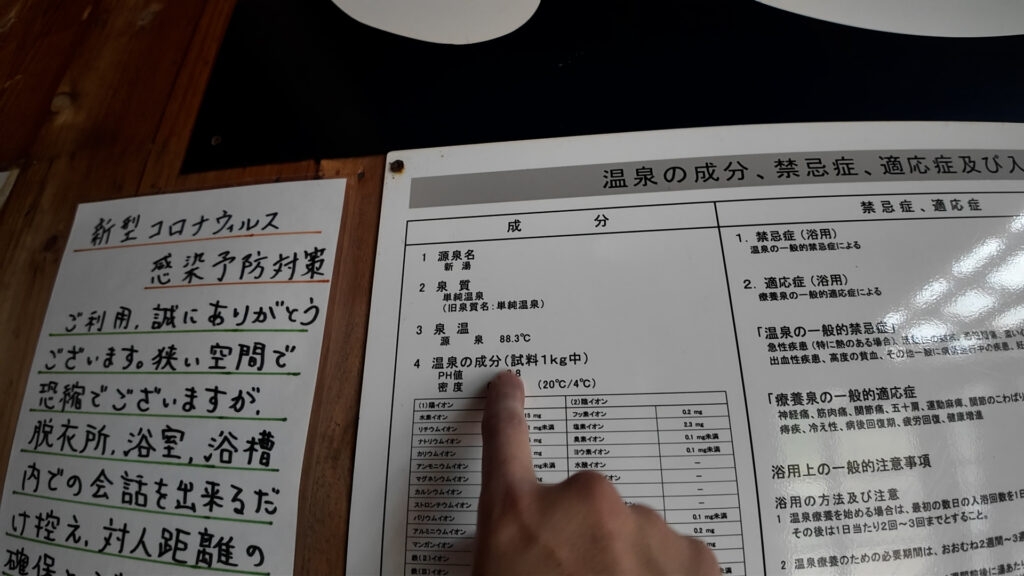 新型コロナウィルス
感染予防対策
ご利用,誠にありがとう
ございます。狭い空間で
恐縮でございますが、
脱衣所,浴室,浴槽
内での会話を出来るだ
け控え,対人距離の
温泉の成分、禁忌症、適応症及び入
成 分
1 源泉名
新 湯
2 泉 質
単純温泉
(旧泉質名:単純温泉)
3 泉 温
源 泉 88.3℃
4 温泉の成分(試料1kg中)
PH値
密度 (20℃/4℃)
(1)陽イオン (2)陰イオン
水素イオン mg フッ素イオン 0.2 mg
リチウムイオン mg未満 塩素イオン 2.3 mg
ナトリウムイオン mg 臭素イオン 0.1 mg未満
カリウムイオン mg未満 ヨウ素イオン 0.1 mg未満
アンモニウムイオン mg 水酸イオン －
マグネシウム －
カルシウムイオン －
ストロンチウムイオン
バリウムイオン 0.1 mg未満
アルミニウムイオン 0.2 mg
マンガンイオン
禁忌症、適応症
1. 禁忌症(浴用)
温泉の一般的禁忌症による
2. 適応症(浴用)
療養泉の一般的適応症による
「温泉の一般的禁忌症」
急性疾患(特に熱のある場合)
出血性疾患、高度の貧血、その他一般に病勢進行中の疾患、妊
「療養泉の一般的適応症
神経痛、筋肉痛、関節痛、五十肩、運動麻痺、関節のこわばり
痔疾、冷え性、病後回復期、疲労回復、健康増進
浴用上の一般的注意事項
浴用の方法及び注意
1 温泉療養を始める場合は、最初の数日の入浴回数を1日
その後は1日当たり2回～3回までとすること。
2 温泉療養のための必要期間は、おおむね2週間～3週